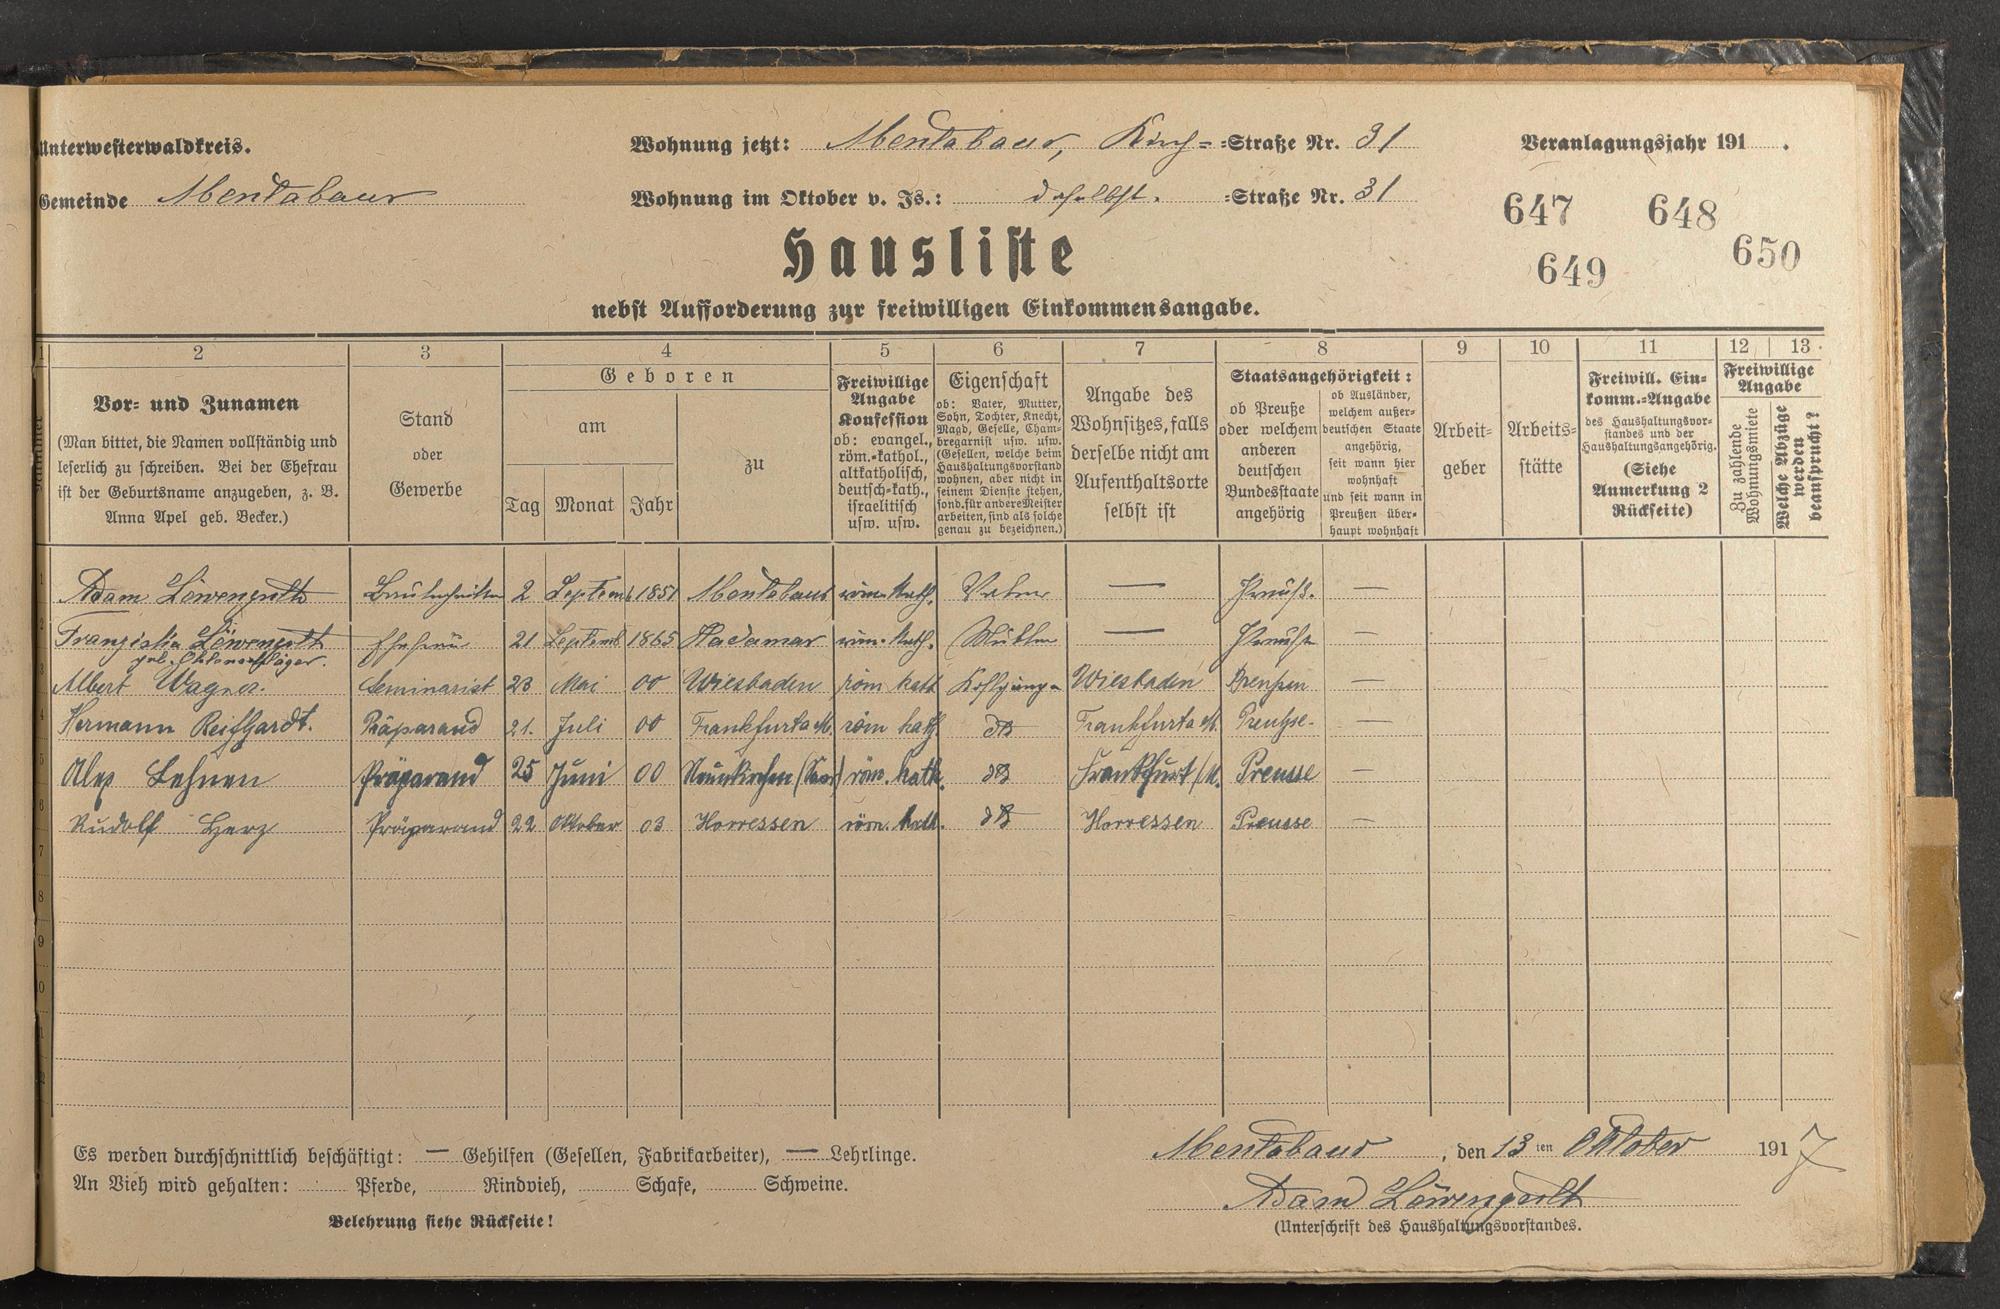 Unterwesterwaldkreis.
Wohnung jetzt: Montabaur, Kirch= =Straße Nr. 31
Veranlagungsjahr 191 .
Gemeinde Montabaur
Wohnung im Oktober v. Js.: daselbst. =Straße Nr. 31
647 648
649 650
Hausliste
nebst Aufforderung zur freiwilligen Einkommensangabe.
1 2 3 4 5 6 7 8 9 10 11 12 13
Vor- und Zunamen
(Man bittet, die Namen vollständig und
leserlich zu schreiben. Bei der Ehefrau
ist der Geburtsname anzugeben, z. B.
Anna Apel geb. Becker.)
Stand
oder
Gewerbe
Geboren
am
Tag Monat Jahr
zu
Freiwillige
Angabe
Konfession
ob: evangel.,
röm.-kathol.,
altkatholisch,
deutsch-kath.,
israelitisch
usw. usw.
Eigenschaft
ob: Vater, Mutter,
Sohn, Tochter, Knecht,
Magd, Geselle, Cham-
bregarnist usw. usw.
(Gesellen, welche beim
Haushaltungsvorstand
wohnen, aber nicht in
seinem Dienste stehen,
sond. für andere Meister
arbeiten, sind als solche
genau zu bezeichnen.)
Angabe des
Wohnsitzes, falls
derselbe nicht am
Aufenthaltsorte
selbst ist
Staatsangehörigkeit:
ob Preuße
oder welchem
anderen
deutschen
Bundesstaate
angehörig
ob Ausländer,
welchem außer-
deutschen Staate
angehörig,
seit wann hier
wohnhaft
und seit wann in
Preußen über-
haupt wohnhaft
Arbeit-
geber
Arbeits-
stätte
Freiwill. Ein-
komm.-Angabe
des Haushaltungsvor-
standes und der
Haushaltungsangehörig.
(Siehe
Anmerkung 2
Rückseite)
Freiwillige
Angabe
Zu zahlende
Wohnungsmiete
Welche Abzüge
werden
beansprucht?
1 Adam Löwenguth 2 Septemb 1851 Montabaur röm. kath. Vater — Preuß. —
2 Franziska Löwenguth Ehefrau 21 Septemb 1865 Hadamar röm. kath. Mutter — Preuße —
3 Albert Wagner. Seminarist 23 Mai 00 Wiesbaden röm kath Wiesbaden Preußen —
4 Hermann Reifhardt. Präparand 21. Juli 00 Frankfurt a M. röm kath Frankfurt a M. Preuße. —
5 Alex Lehnen Präparand 25 Juni 00 Neunkirchen (Saar) röm. kath. Frankfurt /M. Preusse —
6 Rudolf Herz Präparand 22 Oktober 03 Horressen röm. kath. Horressen Preusse —
7
8
9
0
1
2
Es werden durchschnittlich beschäftigt: — Gehilfen (Gesellen, Fabrikarbeiter), — Lehrlinge.
Montabaur, den 13 ten Oktober 1917
An Vieh wird gehalten: Pferde, Rindvieh, Schafe, Schweine.
Adam Löwenguth
Belehrung siehe Rückseite!
(Unterschrift des Haushaltungsvorstandes.